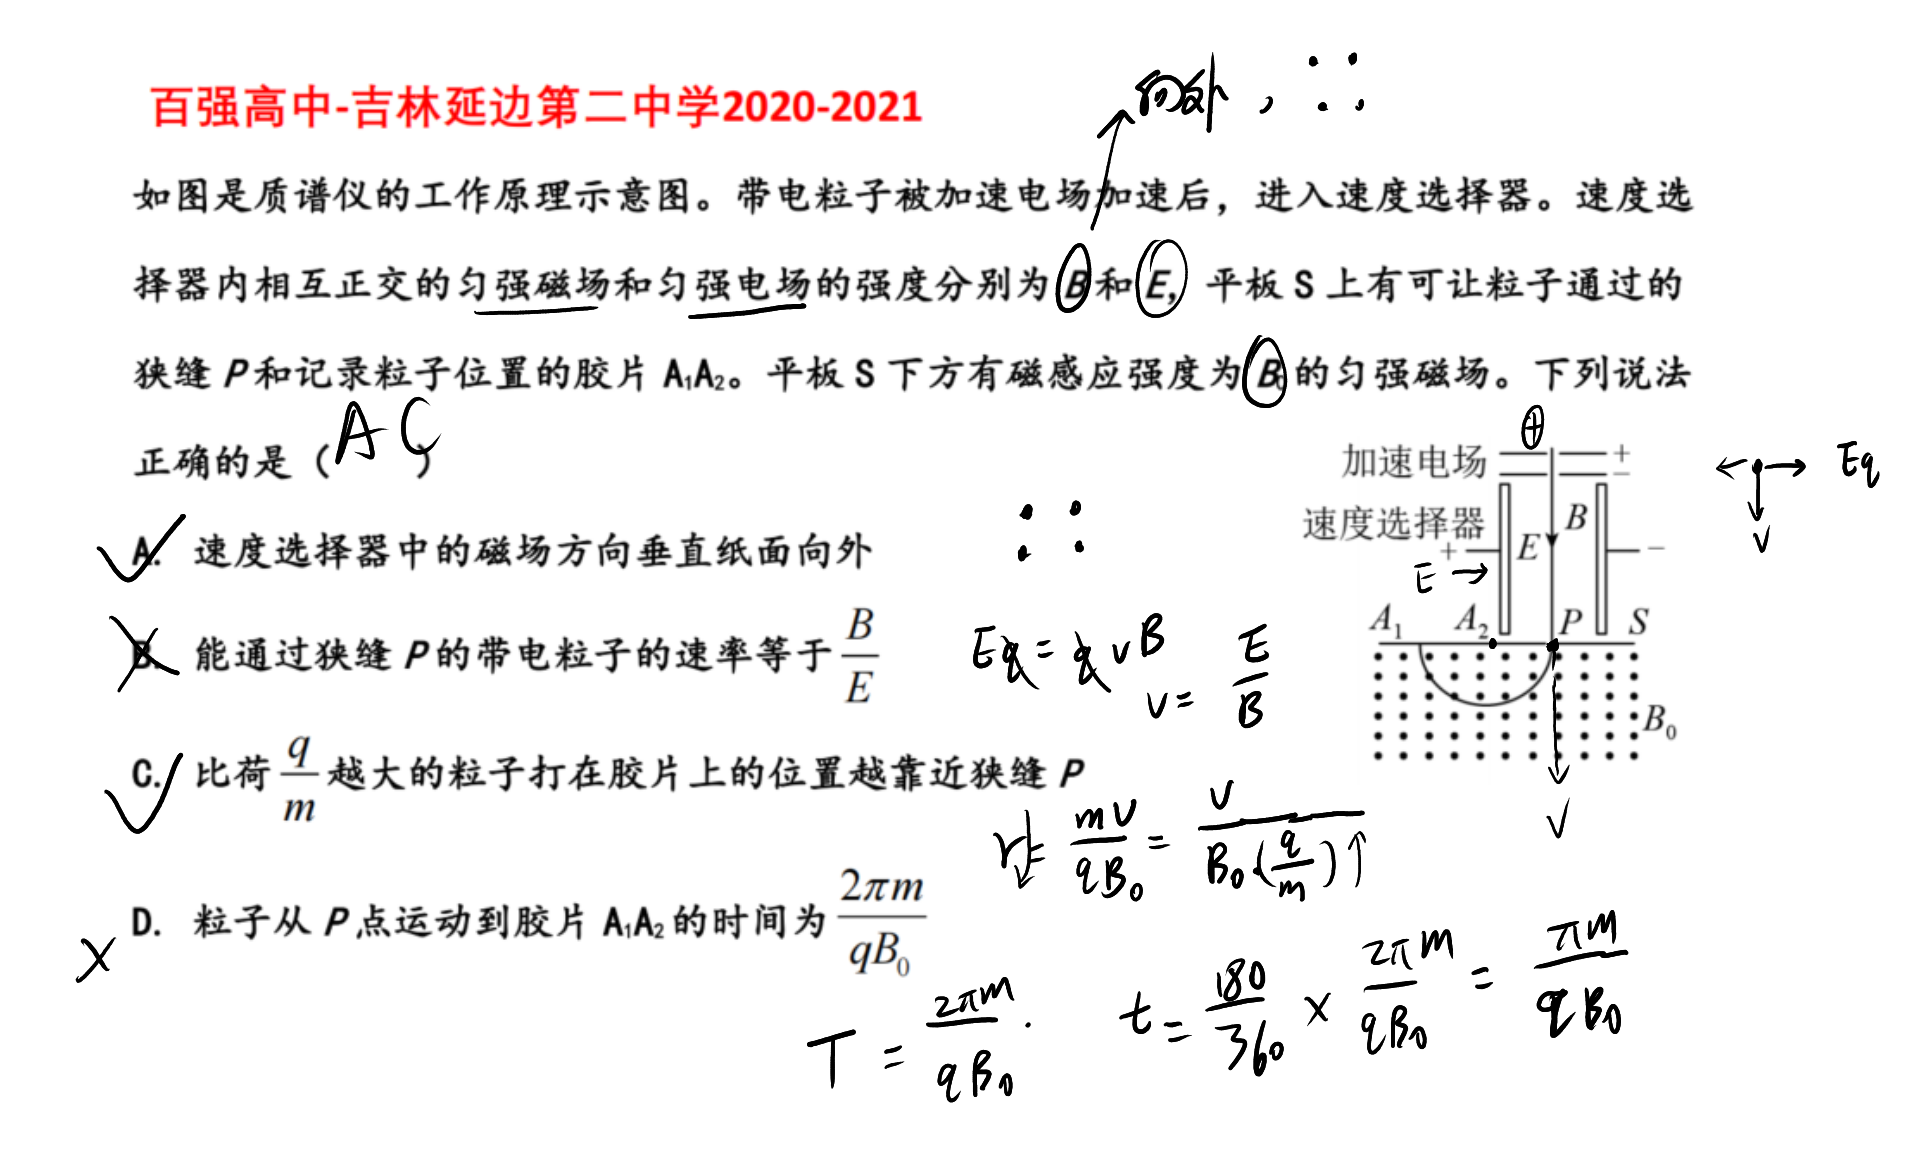 百强高中-吉林延边第二中学2020-2021
向外,
如图是质谱仪的工作原理示意图。带电粒子被加速电场加速后，进入速度选择器。速度选
择器内相互正交的匀强磁场和匀强电场的强度分别为B和E，平板S上有可让粒子通过的
狭缝P和记录粒子位置的胶片A₁A₂。平板S下方有磁感应强度为B₀的匀强磁场。下列说法
正确的是（AC）
A. 速度选择器中的磁场方向垂直纸面向外
B. 能通过狭缝P的带电粒子的速率等于 B/E
Eq = qvB
v = E/B
C. 比荷 q/m 越大的粒子打在胶片上的位置越靠近狭缝P
r↓ = mv/qB₀ = v/B₀·(q/m)↑
D. 粒子从P点运动到胶片A₁A₂的时间为 2πm/qB₀
T = 2πm/qB₀ .
t = 180/360 × 2πm/qB₀ = πm/qB₀
⊕
加速电场 + −
速度选择器 B
+ E −
E →
A₁ A₂ P S
B₀
v
Eq
v